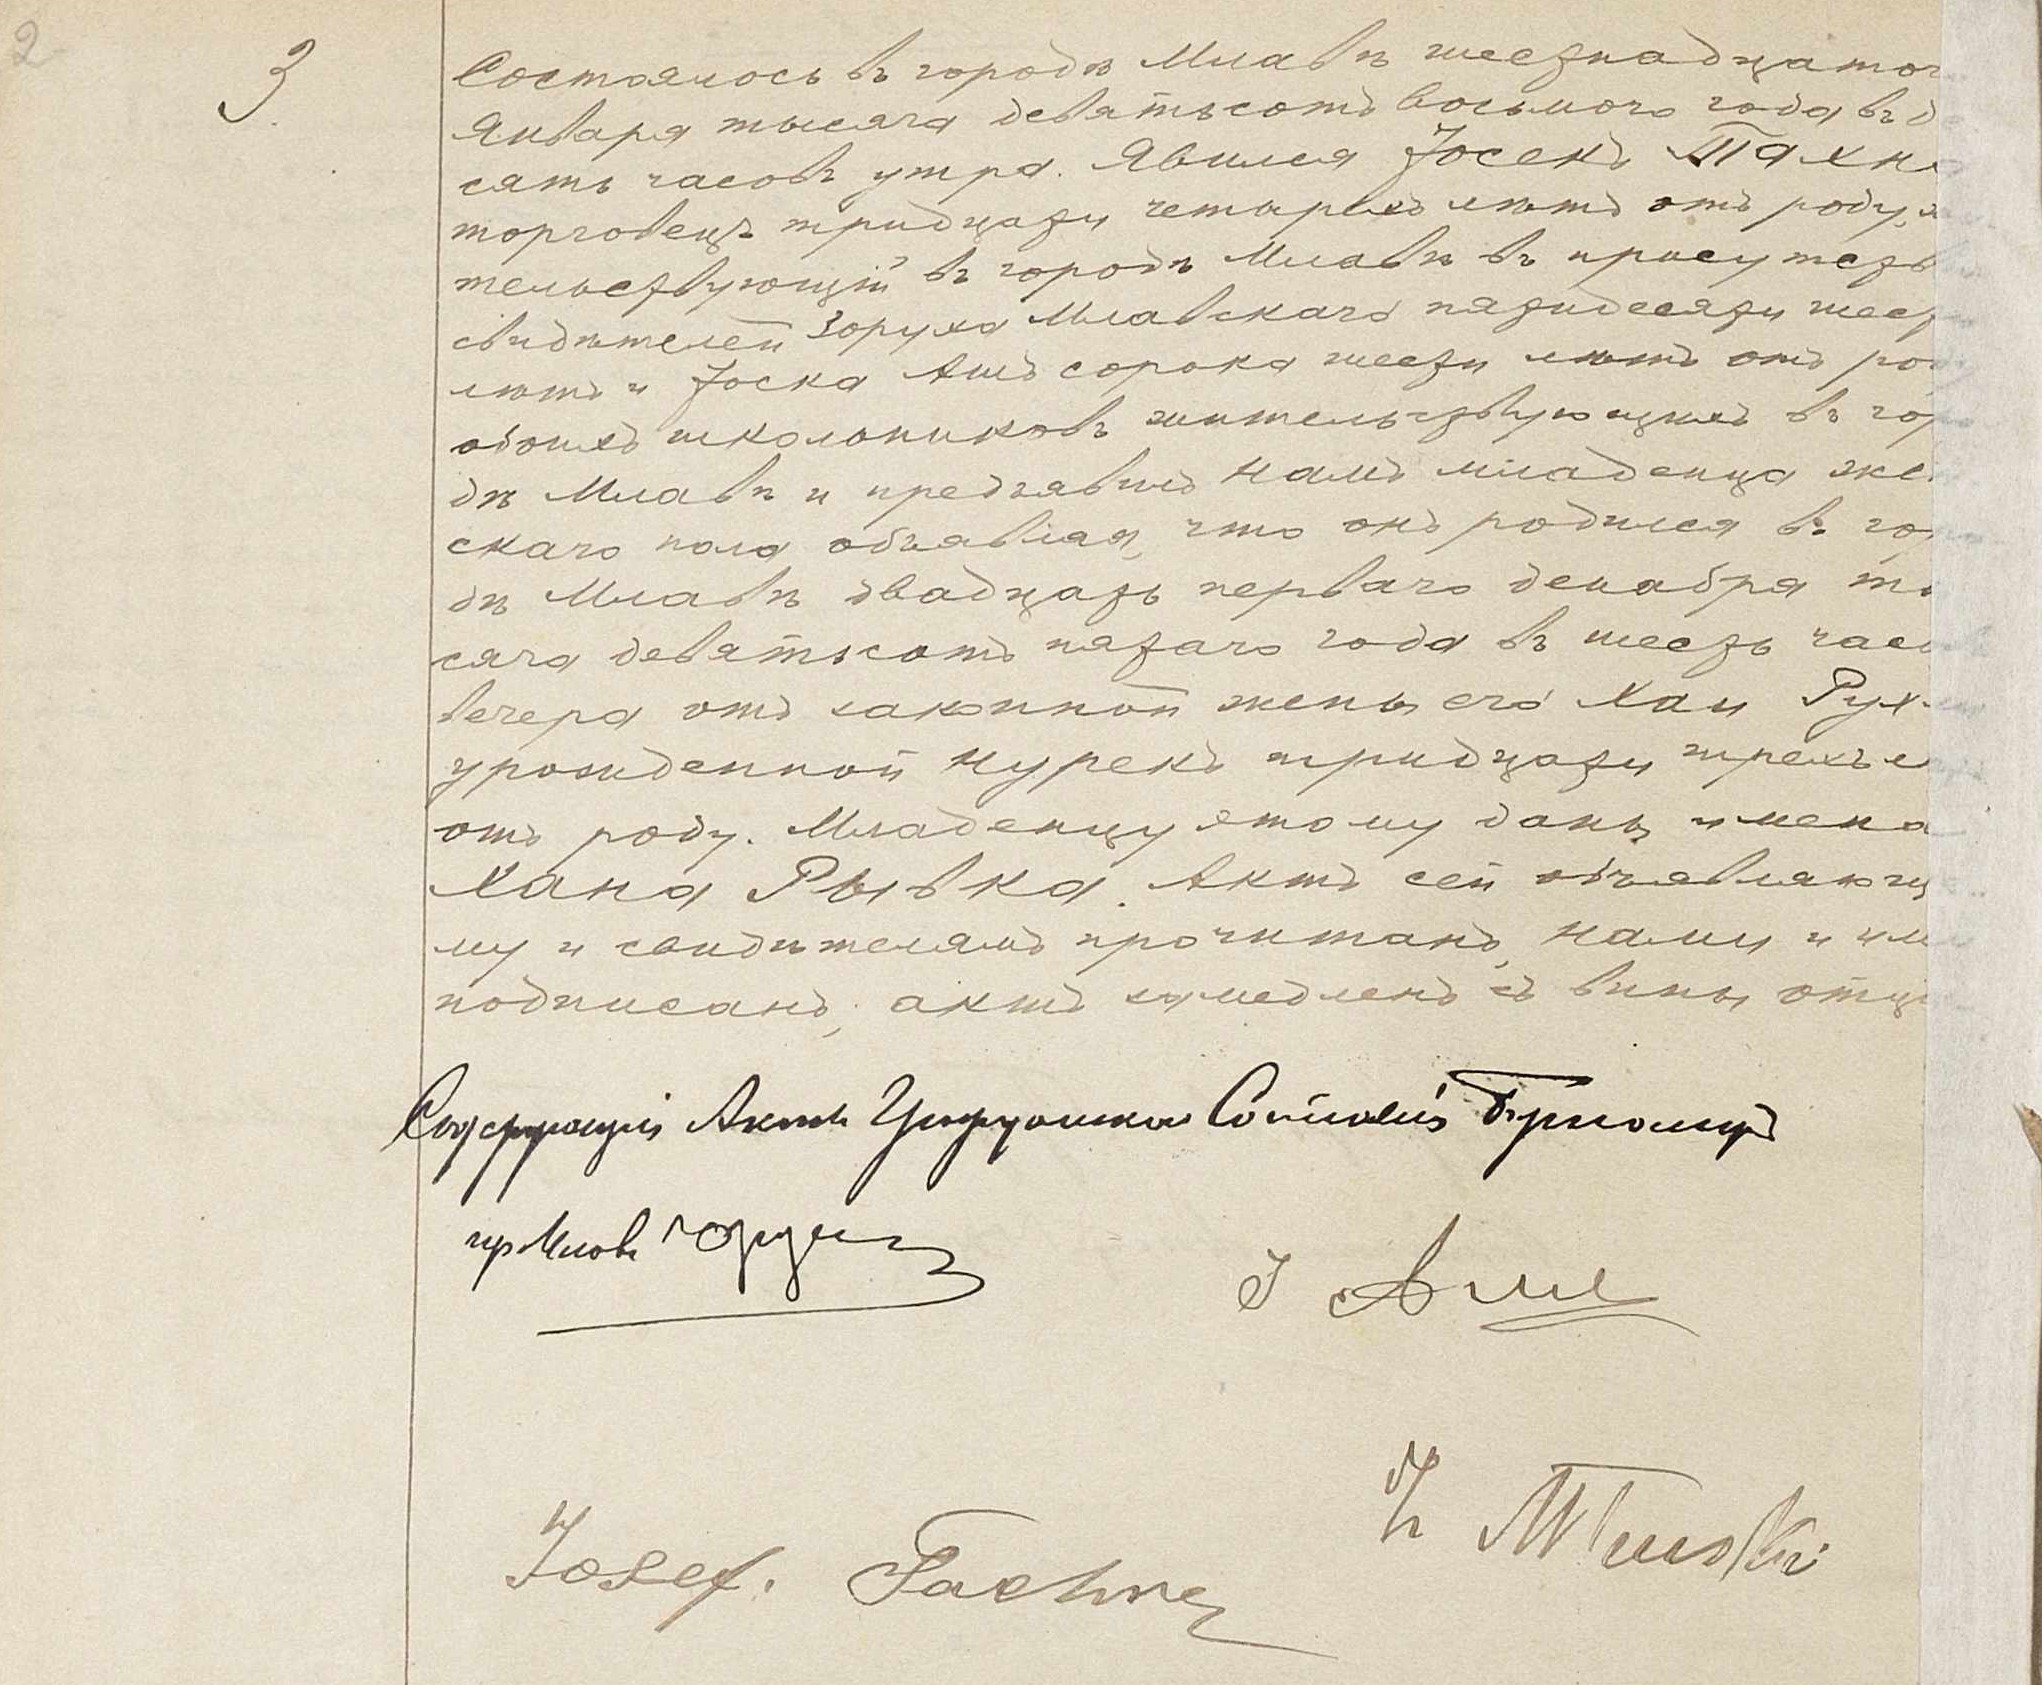 2
3
Состоялось въ городѣ Млавѣ шестнадцатаг
Января тысяча девятьсотъ восьмого года въ д
сять часовъ утра. Явился Іосекъ Тахн
торговецъ тридцати четырехъ лѣтъ отъ роду, ж
тельствующій въ городѣ Млавѣ въ присутств
свидѣтелей Зоруха Млавскаго пятидесяти шест
лѣтъ и Іоска Ашъ сорока шести лѣтъ отъ род
обоихъ школьниковъ жительствующихъ въ гор
дѣ Млавѣ и предъявилъ намъ младенца жен
скаго пола объявляя, что онъ родился въ гор
дѣ Млавѣ двадцать перваго декабря ты
сяча девятьсотъ пятаго года въ шесть час
вечера отъ законной жены его Хаи Рух
урожденной Нурекъ тридцати трехъ л
отъ роду. Младенцу этому даны имена
Хана Рывка. Актъ сей объявляющ
му и свидѣтелямъ прочитанъ, нами и им
подписанъ, актъ замедленъ съ вины отц
Содержащій Акты Гражданскаго Состоянія Бурмистръ
гр Млавы
I Аш
Z Mławski
Josef. Tachna